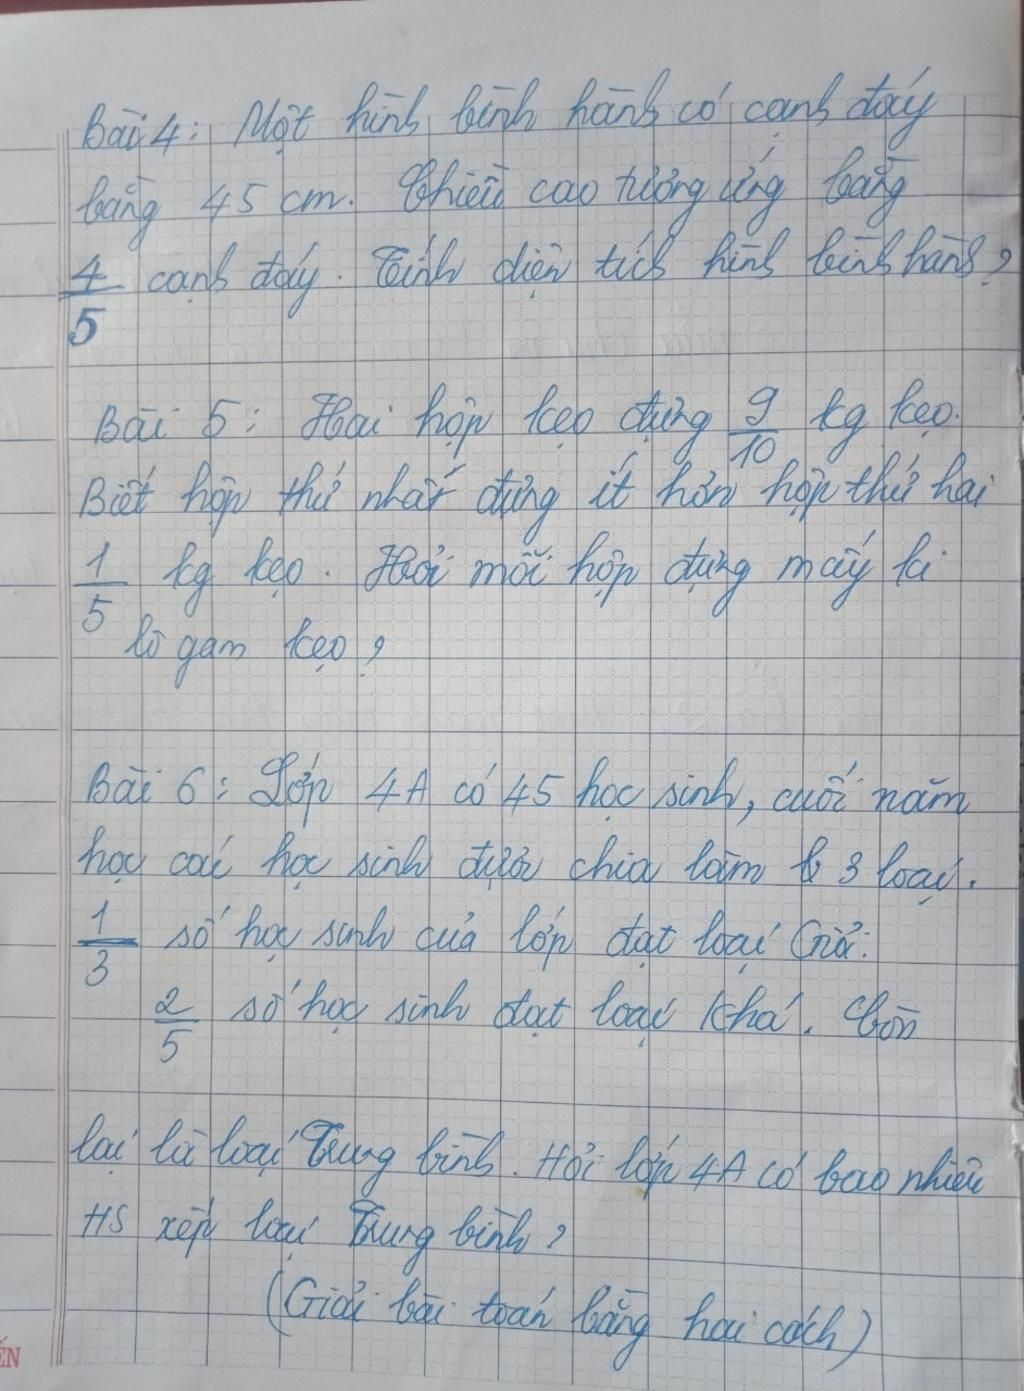 Bài 4: Một hình bình hành có cạnh đáy
bằng 45 cm. Chiều cao tương ứng bằng
4/5 cạnh đáy. Tính diện tích hình bình hành?
Bài 5: Hai hộp kẹo đựng 9/10 kg kẹo.
Biết hộp thứ nhất đựng ít hơn hộp thứ hai
1/5 kg kẹo. Hỏi mỗi hộp đựng mấy ki
lô gam kẹo?
Bài 6: Lớp 4A có 45 học sinh, cuối năm
học các học sinh được chia làm 3 loại.
1/3 số học sinh của lớp đạt loại Giỏi.
2/5 số học sinh đạt loại Khá. Còn
lại là loại Trung bình. Hỏi lớp 4A có bao nhiêu
HS xếp loại Trung bình?
(Giải bài toán bằng hai cách)
ẾN